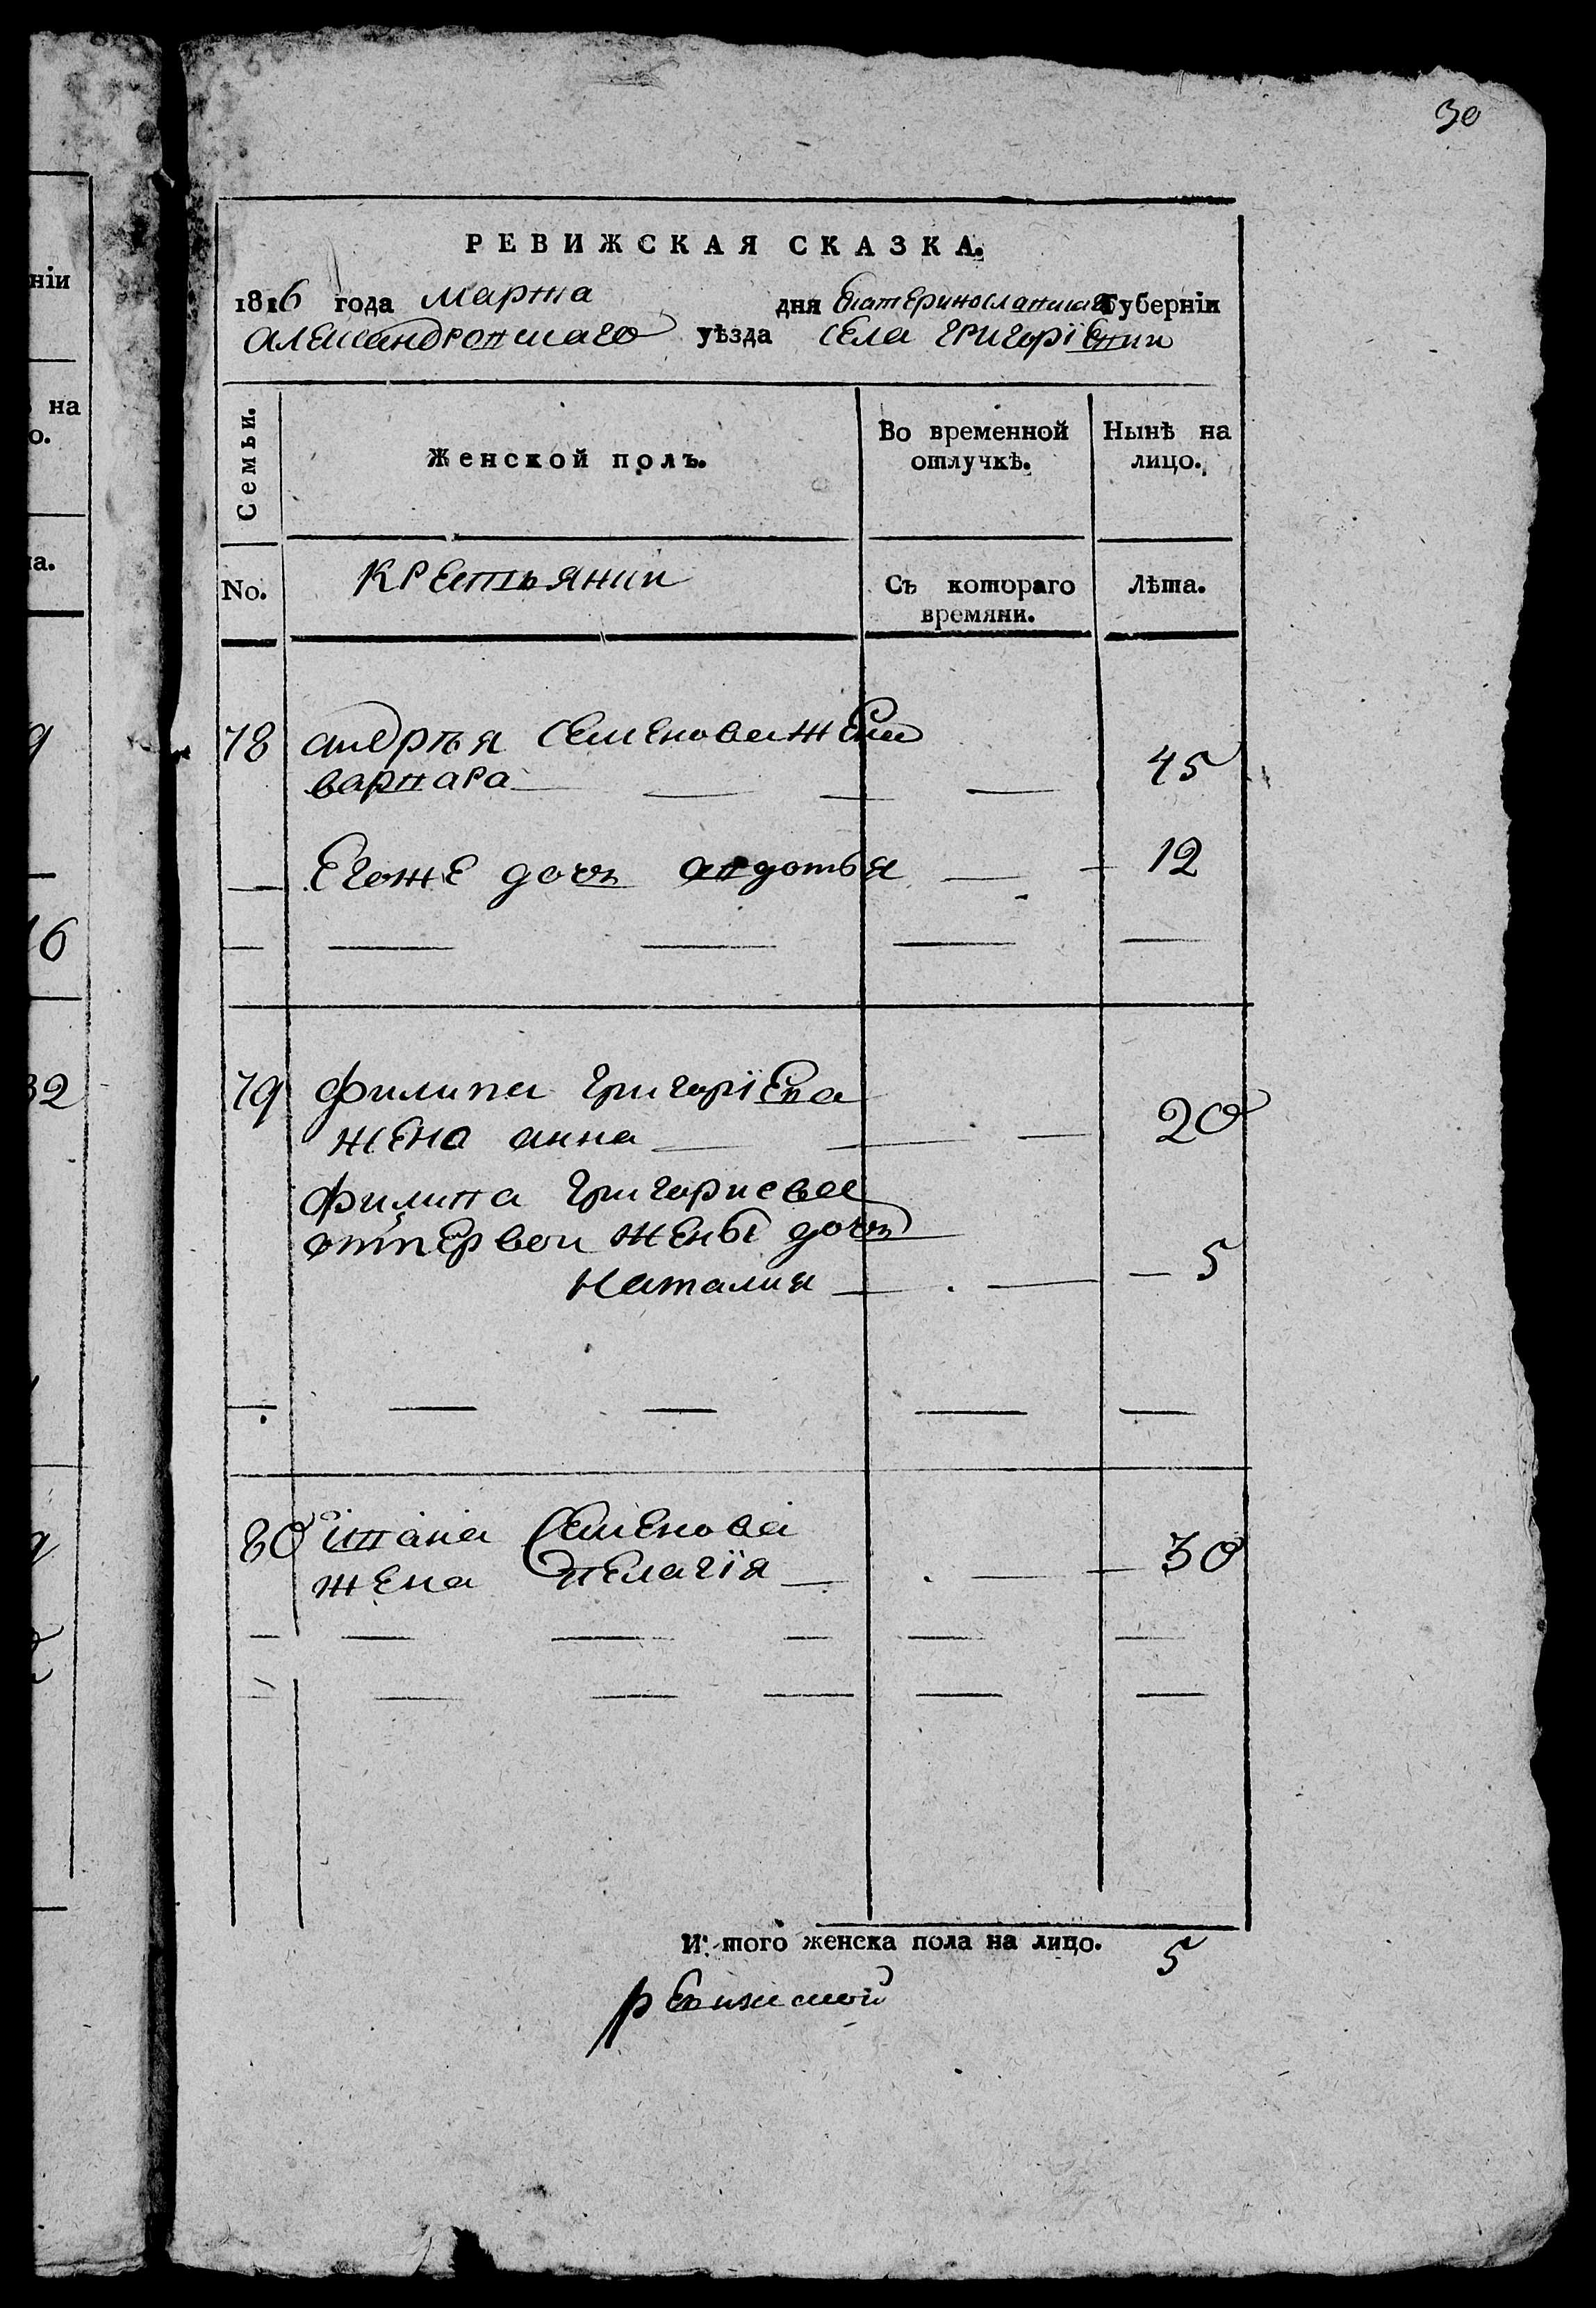 30
РЕВИЖСКАЯ СКАЗКА.
1816 года марта дня Екатеринославской Губерніи
Александровскаго уѣзда села григоріевки
Семьи. Женской полъ. Во временной отлучкѣ. Нынѣ на лицо.
No. крестьянки Съ котораго времяни. Лѣта.
78 андрѣя Семенова жена
варвара 45
Егоже дочь авдотья 12
79 филипа григоріева
жена анна 20
филипа григориева
отпервои жены дочь
Наталия 5
80 івана Семенова
жена пелагія 30
И того женска пола на лицо. 5
ревижской
ніи
на
о.
а.
9
16
32